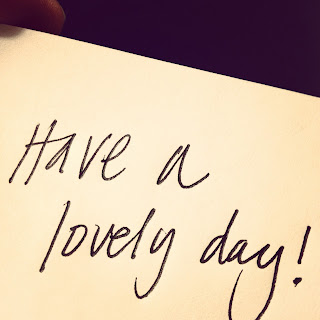 Have a
lovely day!